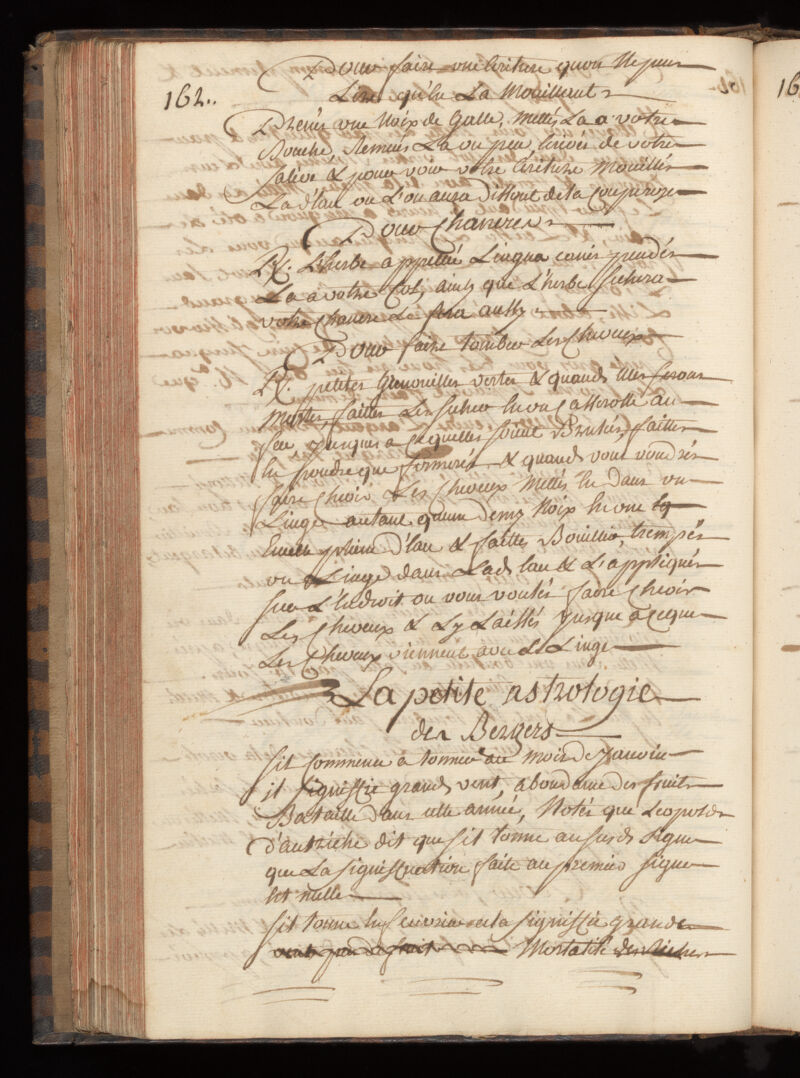 Pour faire une Ecriture quon Ne peut
162..
Lire qu'En La Mouillant
Prenés une Noix de Galle, Mettés La a votre
Bouche, Remués La un peu, Ecrivés de votre
Salive & pour voir votre Ecriture Mouillés
La d'Eau ou L'on aura dissout de la Couperoze
Pour Chancres
R. L'herbe appellée Lingua canis pendés
La a votre Col, ainsy que L'herbe Sechera
votre Chancre Le fera aussy
Pour faire tomber Les Cheveux
R. petites Grenouilles vertes & quands Elles Seront
Mortes, faittes Les Secher En un Casserolle au
feu Jusques a cequelles soint Brulées, faittes
En poudre que Serrerés & quands vous voudrés
faire Cheoir Les Cheveux Mettés En dans un
Linge autant quun demy Noix En une
Ecuelle pleine d'Eau & faittes Bouillir, trempés
un Linge dans Lad. Eau & L'appliqués
Sur L'Endroit ou vous voulés faire Cheoir
Les Cheveux & Ly Laissés Jusque a ceque
Les Cheveux viennent avec Le Linge
La petite astrologie
des Bergers
Sil Commence a tonner au mois de Janvier
il Signiffie grands vent, abondance des fruits
Bataille dans cette année, Notés que Leopolde
d'autriche dit que Sil tonne au Signe
que La Signiffication faite au premier Signe
Est nulle
Sil tonne En Fevrier cela Signiffie grande
Mortalité des Riches